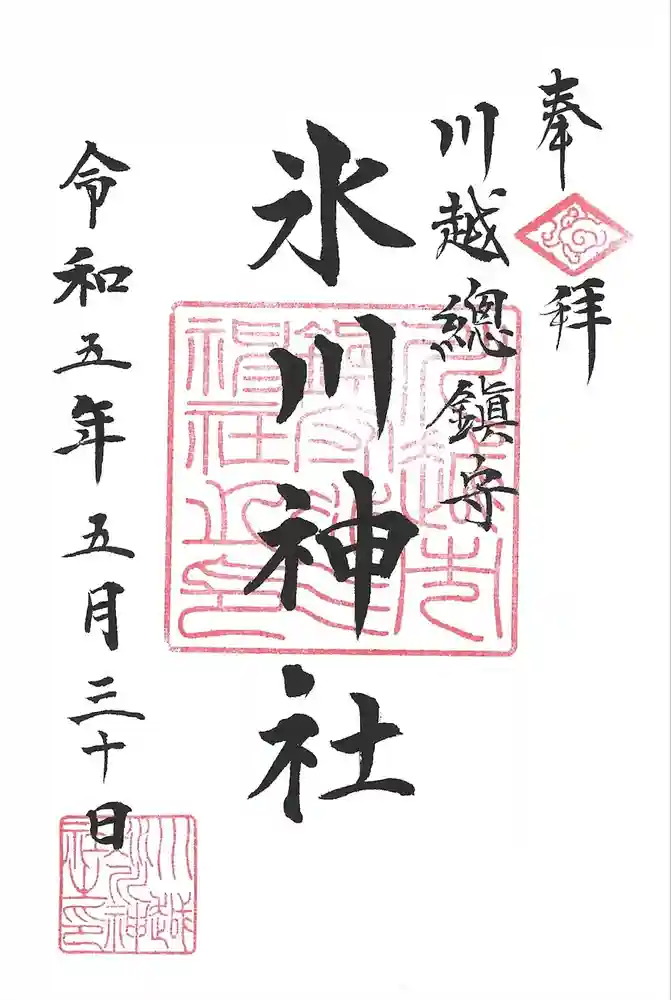 奉拝
川越總鎮守
氷川神社
令和五年五月三十日